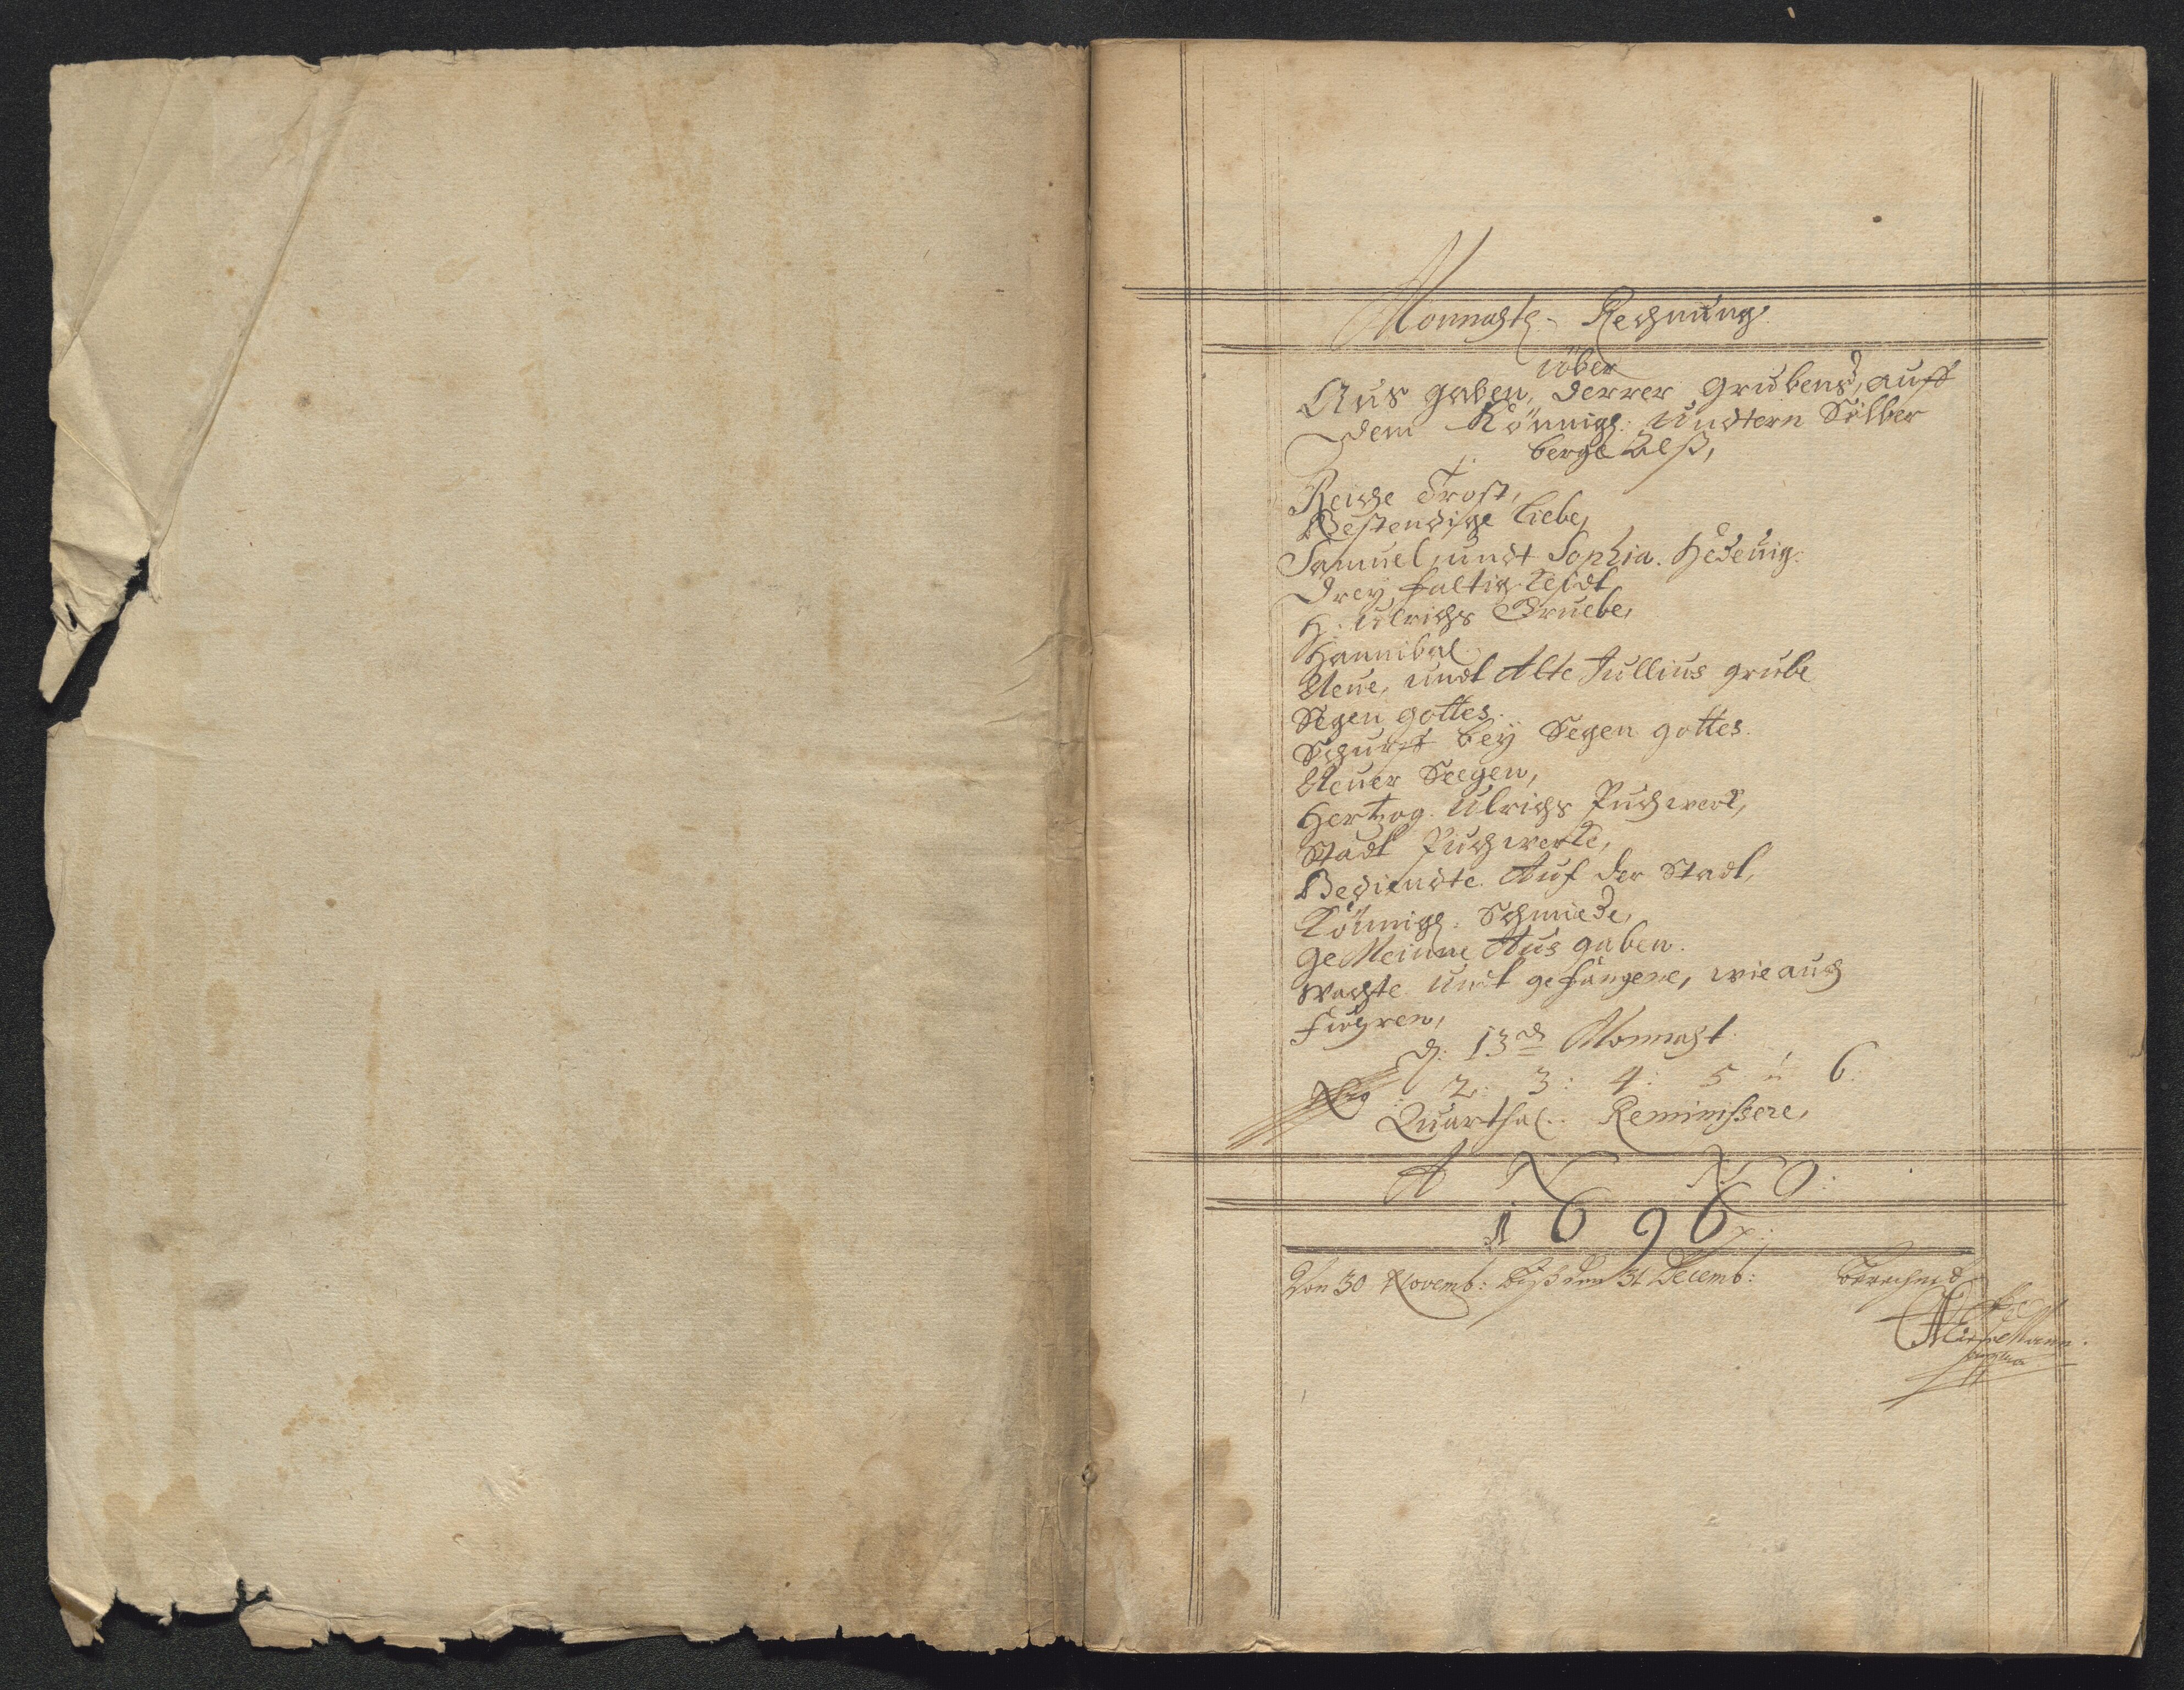 Monnahts- Rechnung
über
Aus gaben, derrer Grubens, auff
dem Könnigl: Undtern Silber
berge Alß,
Reiche Trost,
Bestendige Liebe,
Samuel, undt Sophia. Hedewig.
Drey, faltig Keidt
H: Ulrichs Gruebe,
Hannibal.
Neue, undt Alte Jullius grube
Segen gottes.
Schurff bey Segen gottes.
Neuer Seegen,
Hertzog. Ulrichs Puchwerk,
Stadt Puchwerke,
Bediendte. Auf der Stadt,
Könnigl. Schmiede,
GeMeinne Aus gaben.
Wachte. Undt gefangene, wie auch
Fuhren,
d: 13 d Monnaht.
2: 3: 4: 5 u 6:
Quarthal.. Reminissere,
A N N O:
1696
Von 30 Novemb: biß den 31 Decemb: